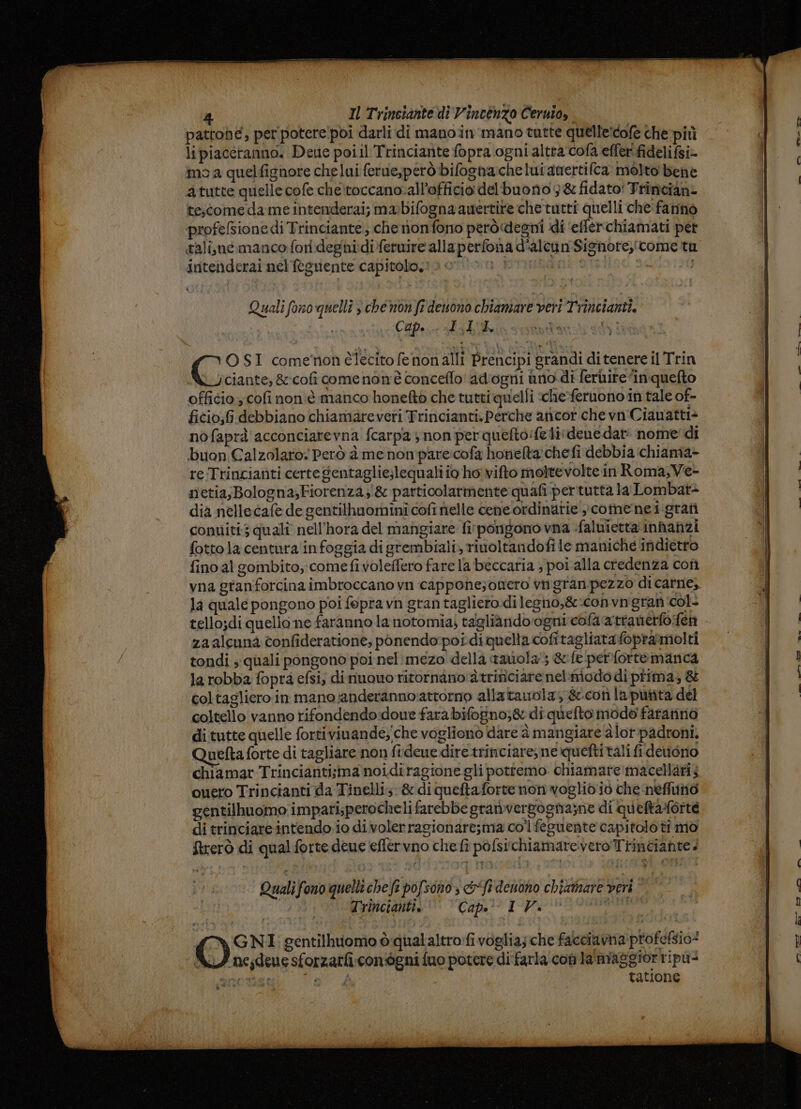 4 Il Trinciante di Vincenzo Ceruio,
patroné, per potere poi darli di mano in mano tutte quelle cose che più
li piaceranno. Deue poi il Trinciante sopra ogni altra cosa esser fidelissi-
mo a quel signore che lui serue, però bisogna che lui auertisca molto bene
a tutte quelle cose che toccano all'officio del buono, & fidato Trincian-
te, come da me intenderai; ma bisogna auertire che tutti quelli che fanno
professione di Trinciante, che non sono però degni di esser chiamati per
tali, ne manco son degni di seruire alla persona d'alcun Signore, come tu
intenderai nel seguente capitolo.
Quali sono quelli, che non si deuono chiamare veri Trincianti.
Cap. III.
COSI come non è lecito se non alli Prencipi grandi di tenere il Trin
ciante, & cosi come non è concesso ad ogni uno di seruire in questo
officio, cosi non è manco honesto che tutti quelli che seruono in tale of-
ficio, si debbiano chiamare veri Trincianti. Perche ancor che vn Ciauatti-
no saprà acconciare vna scarpa, non per questo se li deue dar nome di
buon Calzolaro. Però à me non pare cosa honesta che si debbia chiama-
re Trincianti certe gentaglie, lequali io ho visto molte volte in Roma, Ve-
netia, Bologna, Fiorenza, & particolarmente quasi per tutta la Lombar-
dia nelle case de gentilhuomini cosi nelle cene ordinarie, come ne i gran
conuiti; quali nell'hora del mangiare si pongono vna saluietta inhanzi
sotto la centura in foggia di grembiali, riuoltandosi le maniche indietro
sino al gombito, come si volessero fare la beccaria, poi alla credenza con
vna gran forcina imbroccano vn cappone, ouero vn gran pezzo di carne,
la quale pongono poi sopra vn gran tagliero di legno, & con vn gran col-
tello, di quello ne faranno la notomia, tagliando ogni cosa a trauerso sen
za alcuna consideratione, ponendo poi di quella cosi tagliata sopra molti
tondi, quali pongono poi nel mezo della tauola; & se per sorte manca
la robba sopra essi, di nuouo ritornano à trinciare nel modo di prima, &
col tagliero in mano anderanno attorno alla tauola, & con la punta del
coltello vanno rifondendo doue fara bisogno, & di questo modo faranno
di tutte quelle sorti viuande, che vogliono dare à mangiare à lor padroni.
Questa sorte di tagliare non si deue dire trinciare, ne questi tali si deuono
chiamar Trincianti; ma noi di ragione gli potremo chiamare macellari;
ouero Trincianti da Tinelli; & di questa sorte non voglio io che nessuno
gentilhuomo impari, peroche li sarebbe gran vergogna; ne di questa sorte
di trinciare intendo io di voler ragionare; ma co'l seguente capitolo ti mo
strerò di qual sorte deue esser vno che si possi chiamare vero Trinciante.
Quali sono quelli che si possono, & si deuono chiamare veri
Trincianti. Cap. IV.
OGNI gentilhuomo ò qual altro si voglia, che faccia vna professio-
ne, deue sforzarsi con ogni suo potere di farla con la maggior ripu-
tatione